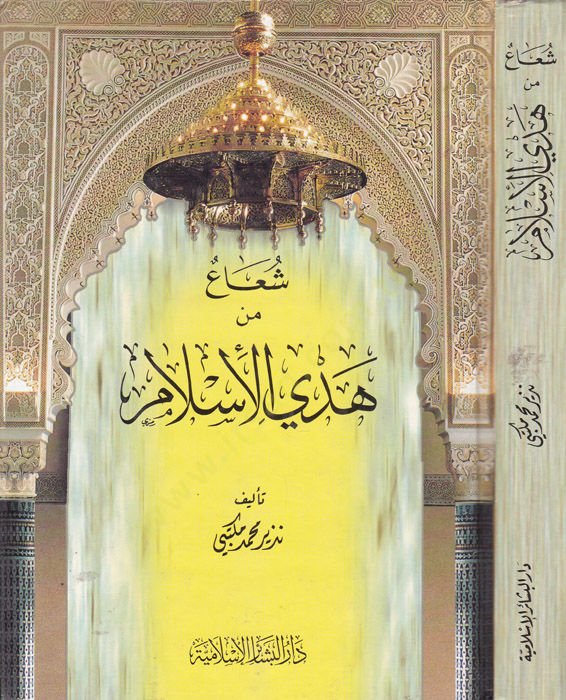 شُعَاعٌ
من
هَدْيِ الْإِسْلَامِ
تأليف
نذير محمد مكتبي
دَارُ البَشَائِرِ الإِسْلَامِيَّة
شُعَاعٌ
من
هَدْيِ الْإِسْلَامِ
نذير محمد مكتبي
دَارُ البَشَائِرِ الإِسْلَامِيَّة